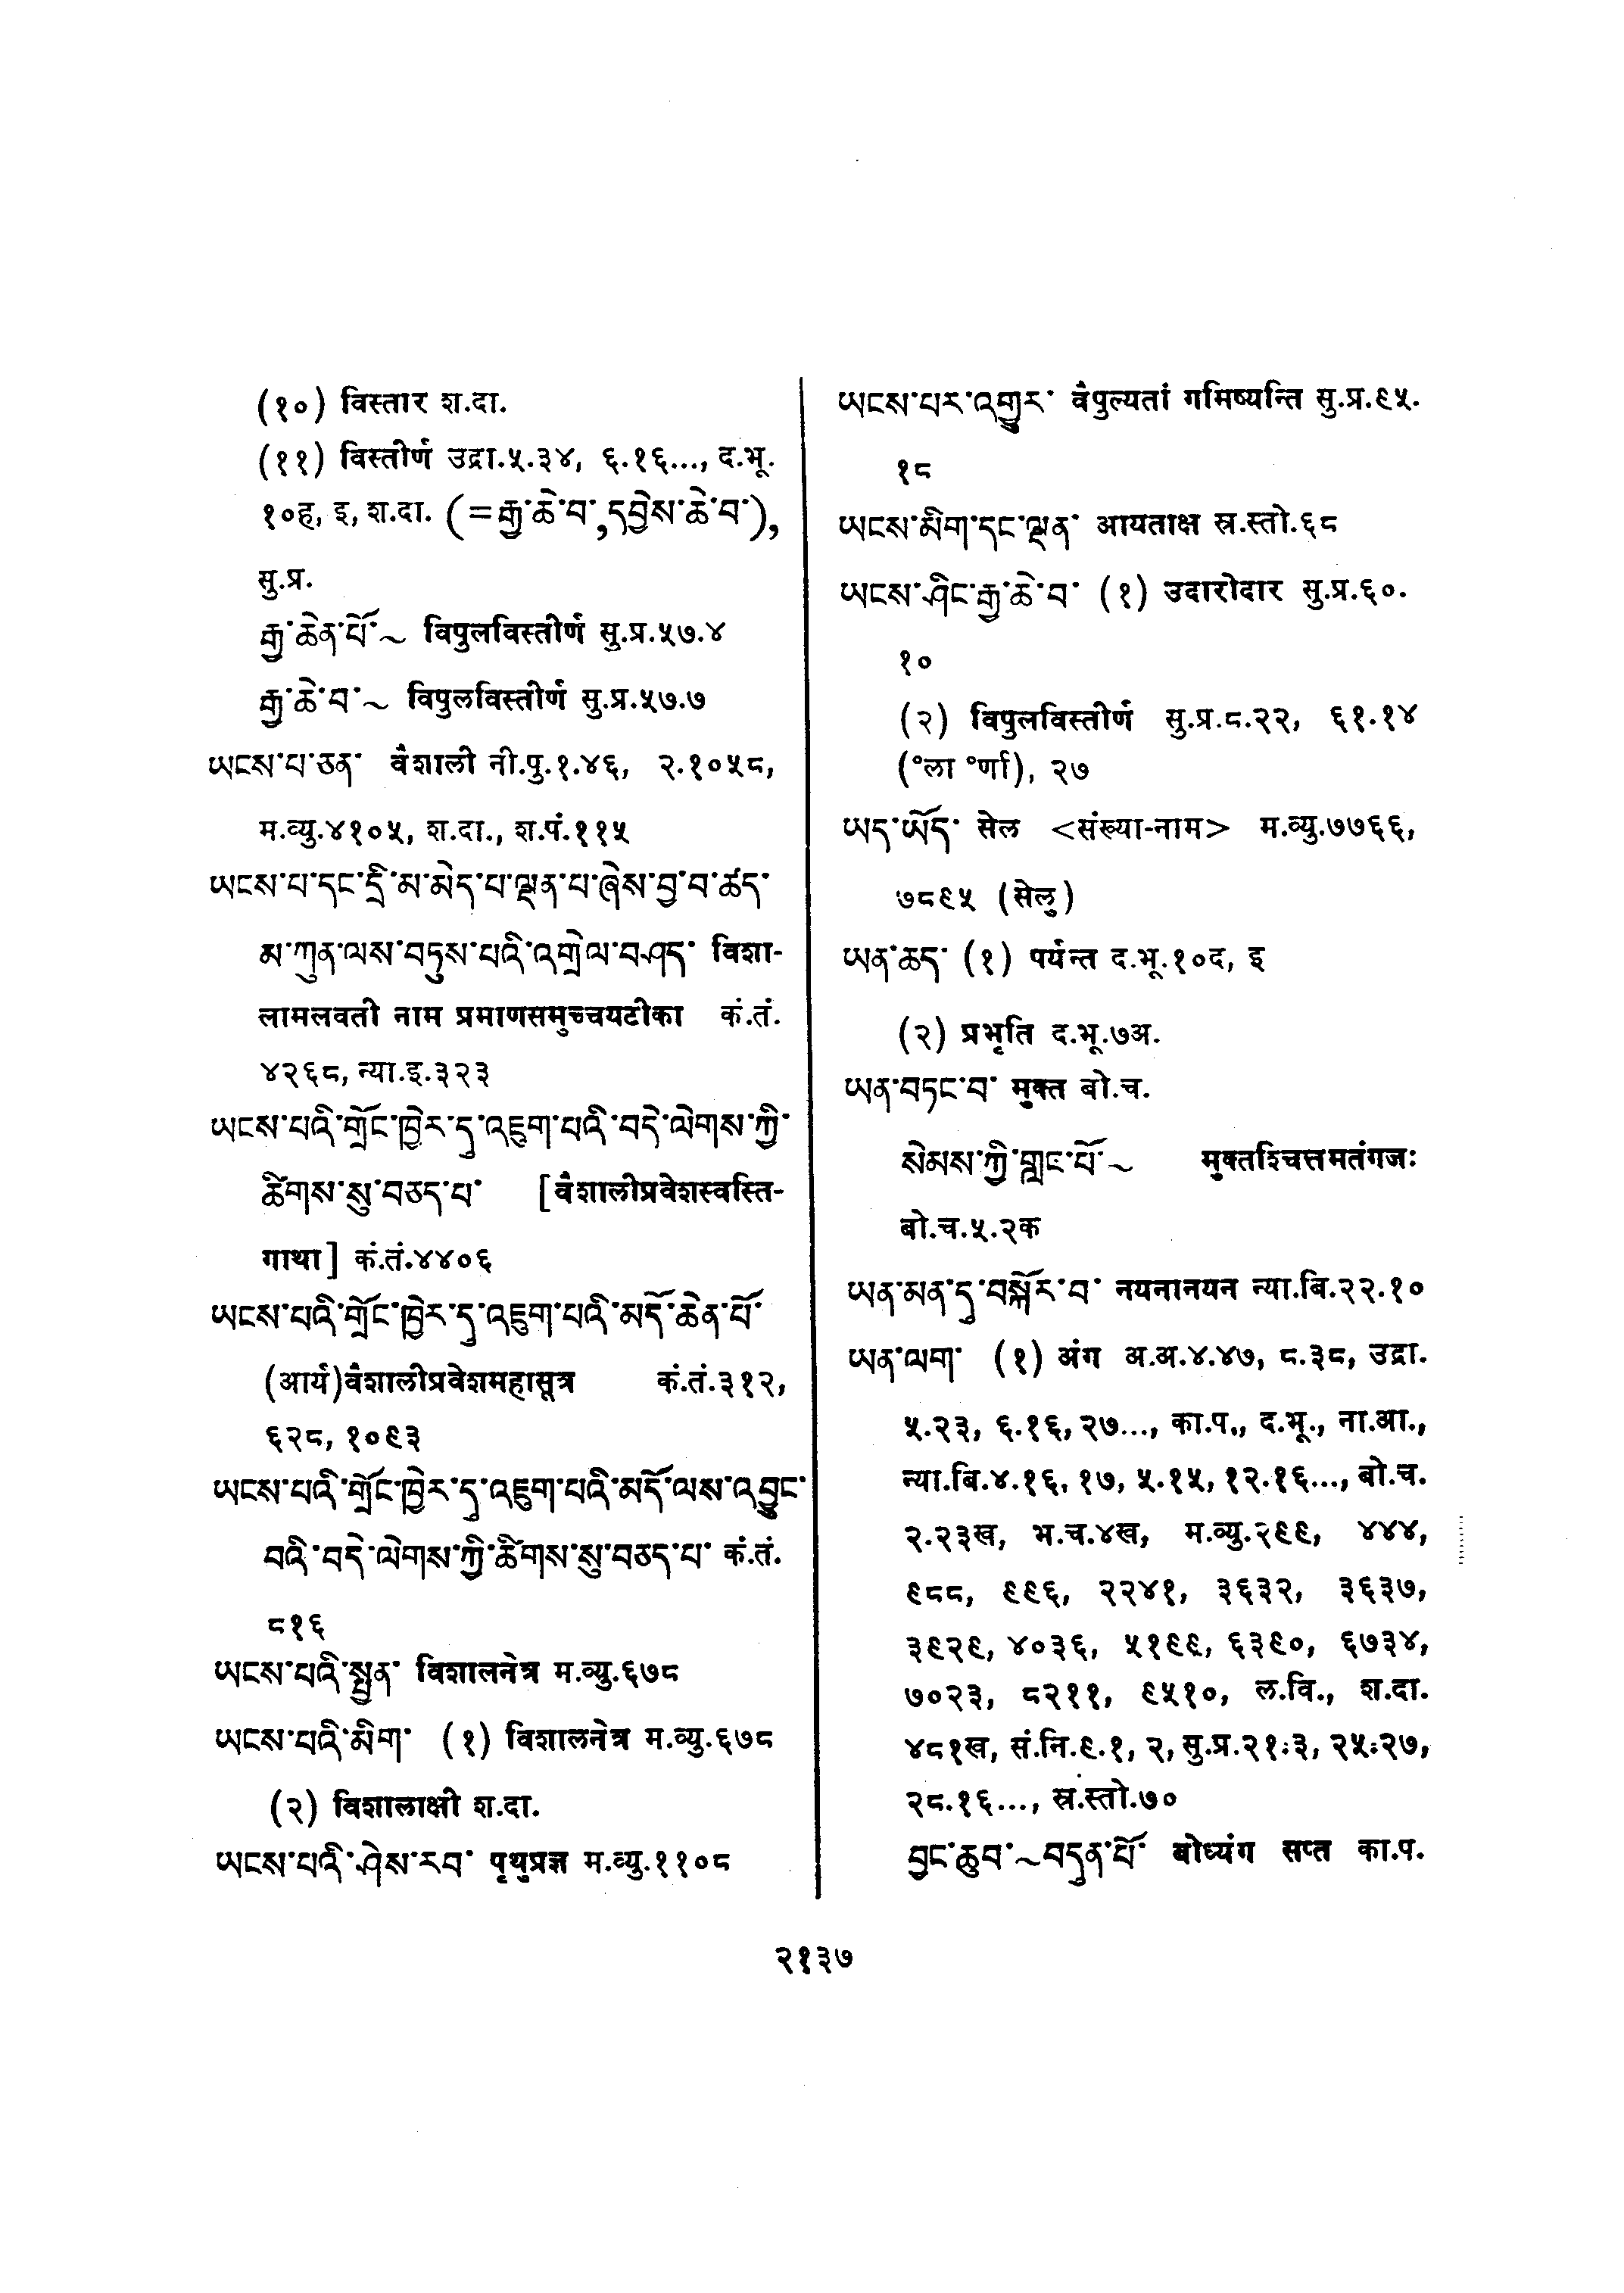 (१०) विस्तार श.दा.
(११) विस्तीर्ण उद्रा.५.३४, ६.१६..., द.भू.
१०ह, इ, श.दा. (=རྒྱ་ཆེ་བ་,དབྱེས་ཆེ་བ་),
सु.प्र.
རྒྱ་ཆེན་པོ་~ विपुलविस्तीर्ण सु.प्र.५७.४
རྒྱ་ཆེ་བ་~ विपुलविस्तीर्ण सु.प्र.५७.७
ཡངས་པ་ཅན་ वैशाली नी.पु.१.४६, २.१०५८,
म.व्यु.४१०५, श.दा., श.पं.११५
ཡངས་པ་དང་དྲི་མ་མེད་པ་ལྡན་པ་ཞེས་བྱ་བ་ཚད་
མ་ཀུན་ལས་བཏུས་པའི་འགྲེལ་བཤད་ विशा-
लामलवती नाम प्रमाणसमुच्चयटीका कं.तं.
४२६८, न्या.इ.३२३
ཡངས་པའི་གྲོང་ཁྱེར་དུ་འཇུག་པའི་བདེ་ལེགས་ཀྱི་
ཚིགས་སུ་བཅད་པ་ [वैशालीप्रवेशस्वस्ति-
गाथा] कं.तं.४४०६
ཡངས་པའི་གྲོང་ཁྱེར་དུ་འཇུག་པའི་མདོ་ཆེན་པོ་
(आर्य)वैशालीप्रवेशमहासूत्र कं.तं.३१२,
६२८, १०९३
ཡངས་པའི་གྲོང་ཁྱེར་དུ་འཇུག་པའི་མདོ་ལས་འབྱུང་
བའི་བདེ་ལེགས་ཀྱི་ཚིགས་སུ་བཅད་པ་ कं.तं.
८१६
ཡངས་པའི་སྤྱན་ विशालनेत्र म.व्यु.६७८
ཡངས་པའི་མིག་ (१) विशालनेत्र म.व्यु.६७८
(२) विशालाक्षी श.दा.
ཡངས་པའི་ཤེས་རབ་ पृथुप्रज्ञ म.व्यु.११०८
ཡངས་པར་འགྱུར་ वैपुल्यतां गमिष्यन्ति सु.प्र.९५.
१८
ཡངས་མིག་དང་ལྡན་ आयताक्ष स्र.स्तो.६८
ཡངས་ཤིང་རྒྱ་ཆེ་བ་ (१) उदारोदार सु.प्र.६०.
१०
(२) विपुलविस्तीर्ण सु.प्र.८.२२, ६१.१४
(°ला °र्णा), २७
ཡད་ཡོད་ सेल <संख्या-नाम> म.व्यु.७७६६,
७८९५ (सेलु)
ཡན་ཆད་ (१) पर्यन्त द.भू.१०द, इ
(२) प्रभृति द.भू.७अ.
ཡན་བཏང་བ་ मुक्त बो.च.
སེམས་ཀྱི་གླང་པོ་~ मुक्तश्चित्तमतंगजः
बो.च.५.२क
ཡན་མན་དུ་བསྐོར་བ་ नयनानयन न्या.बि.२२.१०
ཡན་ལག་ (१) अंग अ.अ.४.४७, ८.३८, उद्रा.
५.२३, ६.१६, २७..., का.प., द.भू., ना.आ.,
न्या.बि.४.१६, १७, ५.१५, १२.१६..., बो.च.
२.२३ख, भ.च.४ख, म.व्यु.२९९, ४४४,
९८८, ९९६, २२४१, ३६३२, ३६३७,
३९२९, ४०३६, ५१९९, ६३९०, ६७३४,
७०२३, ८२११, ९५१०, ल.वि., श.दा.
४८१ख, सं.नि.९.१, २, सु.प्र.२१ः३, २५ः२७,
२८.१६..., स्र.स्तो.७०
བྱང་ཆུབ་~བདུན་པོ་ बोध्यंग सप्त का.प.
२१३७